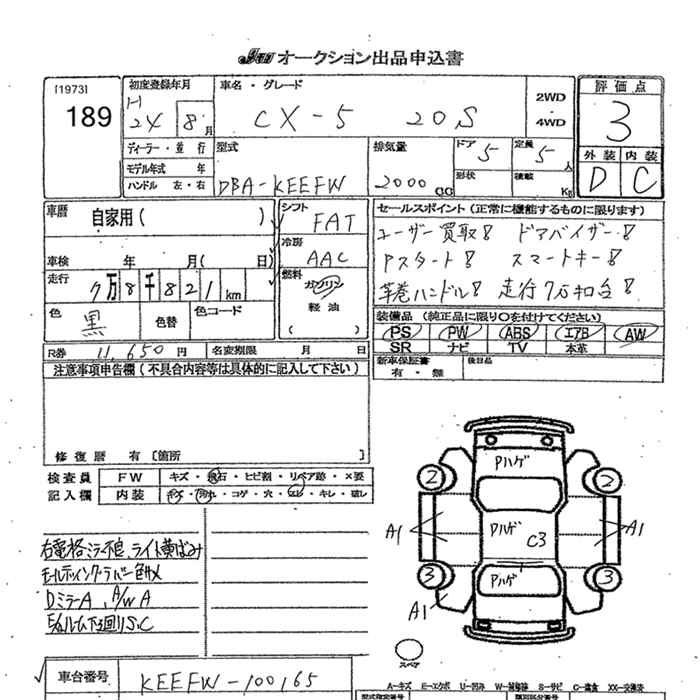 オークション出品申込書
[1973]
189
初度登録年月
H
24 8月
車名・グレード
CX-5 20S
2WD
4WD
評価点
3
外装 内装
D C
ディーラー・並行
モデル年式 年
ハンドル 左・右
型式
DBA-KEEFW
排気量
2000 cc
ドア
5
定員
5人
形状
積載
Kg
車歴
自家用( )
車検 年 月( 日)
走行
7万8千821km
色
黒
色替
色コード
シフト
FAT
冷房
AAC
燃料
ガソリン
軽油
( )
セールスポイント(正常に機能するものに限ります)
ユーザー買取! ドアバイザー!
Pスタート! スマートキー!
革巻ハンドル! 走行7万km台!
装備品 (純正品に限り○を付けてください)
PS PW ABS エアB AW
SR ナビ TV 本革
R券 11,650円
名変期限 月 日
新車保証書
有・無
後日品
注意事項申告欄(不具合内容等は具体的に記入して下さい)
修復歴 有[箇所 ]
検査員
記入欄
FW キズ・飛石・ヒビ割・リペア跡・×要
内装 キズ・汚れ・コゲ・穴・スレ・キレ・破レ
右電格ミラー不良、ライト黄ばみ
モールディング・ラバー色サメ
Dミラー A、A/W A
下廻りS.C
Pハゲ
Pハゲ
C3
Pハゲ
2
2
3
3
A1
A1
A1
スペア
車台番号
KEEFW-100165
A=キズ E=エクボ U=凹み W=補修跡 S=サビ C=腐食 XX=交換済
型式指定番号
類別区分番号